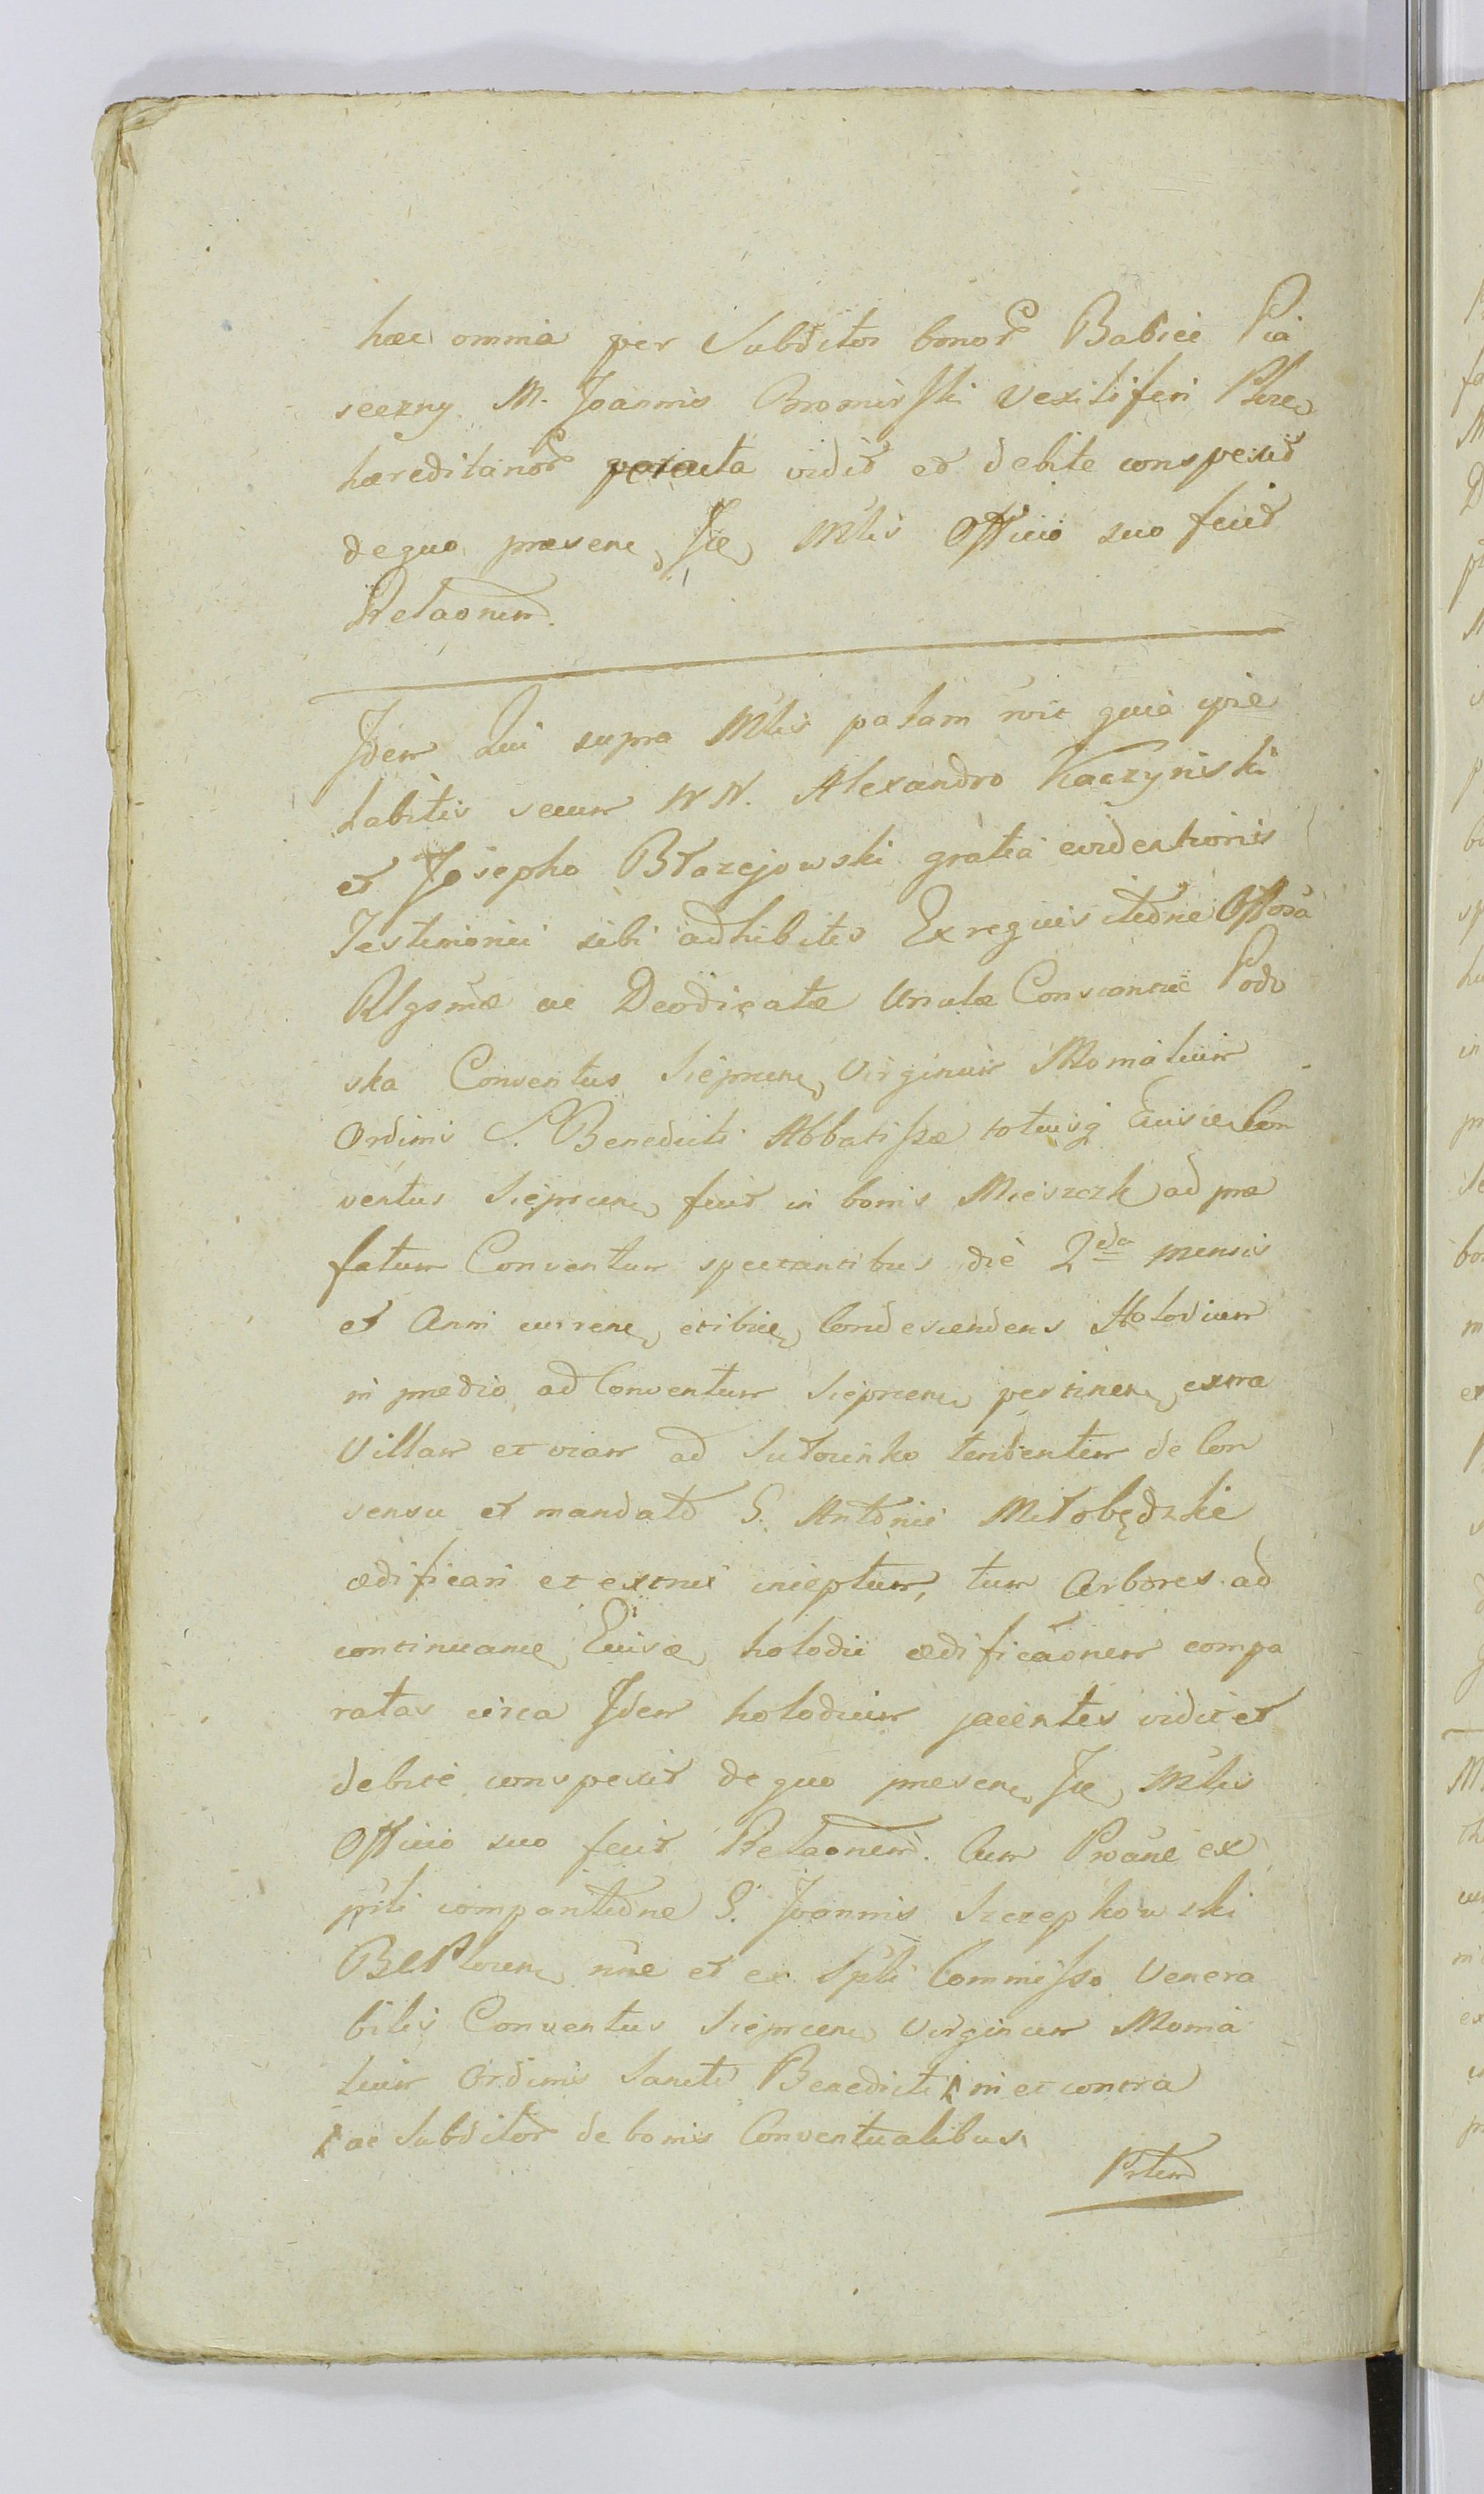 hæc omnia per Subditos bonor Babice Pia
seczny M. Joannis Bromirski Vexiliferi Plocen
hæreditarior peracta vidit et debite conspexit
de quo præsens Jde Mtlis Officio suo fecit
Relaonem.
Jdem Qui supra Mtlis palam rvit quia ipse
habitis secum NN. Alexandro Kaczyński
et Josepho Błazejowski gratia evidentioris
Testimonii sibi adhibitis Ex requisitione Offosa
Rlgsmæ ac Deodicatæ Ursulæ Constantiæ Podo
ska Conventus Sieprcen Virginum Monalium
Ordinis S. Benedicti Abbatissæ totiusq Ejusdem Con
ventus Sieprcen fuit in bonis Mieszczk ad præ
fatum Conventum spectantibus die 2da mensis
et Anni curren et ibidem Condescendens Holodium
in prædio ad Conventum Sieprcen pertinen extra
Villam et viam ad Sułocinko tendentem de Con
sensu et mandato G. Antonii Miłobędzki
ædificari et extrui inceptum, tum Arbores ad
continuand Ejusd holodii ædificaonem compa
ratas circa Jdem holodium jacentes vidit et
debite conspexit de quo præsens Jde Mtlis
Officio suo fecit Relaonem. Cum Proane ex
prli comparitione G. Joannis Szczepkowski
BCPlocen nne et ex Spli Commisso Venera
bilis Conventus Sieprcen Virginum Monia
lium Ordinis Sancti Benedicti in et contra
ac Subditor de bonis Conventualibus
Prtem